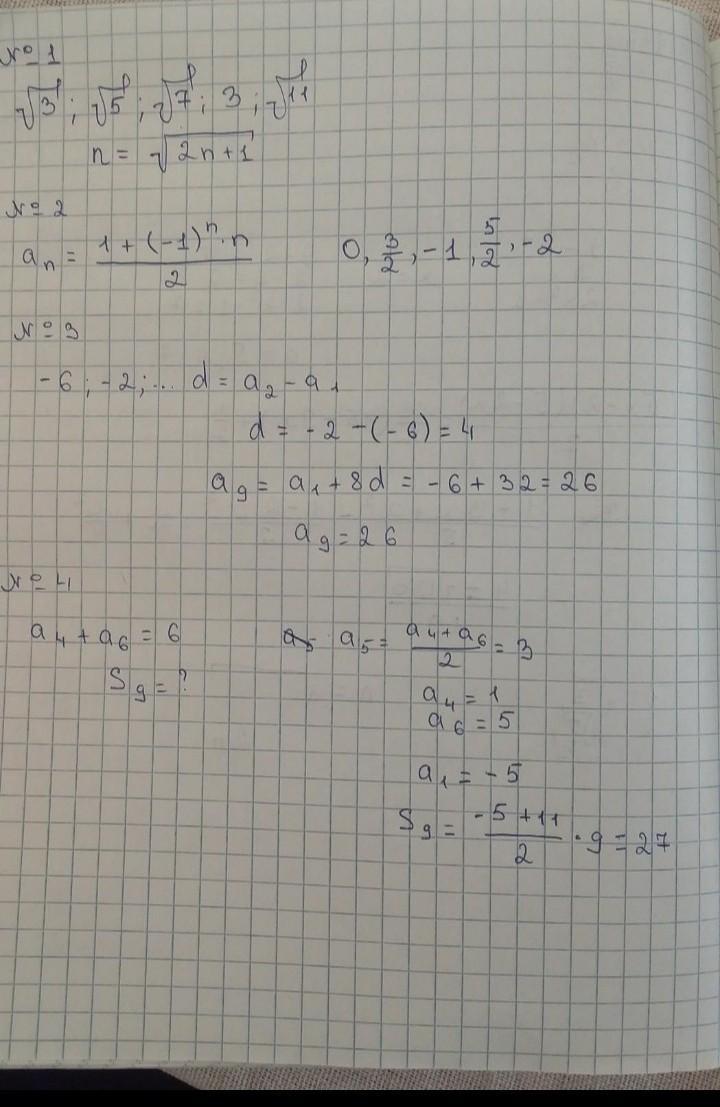 № 1
√3; √5; √7; 3; √11
n = √(2n+1)
№ 2
aₙ = (1 + (-1)ⁿ · n)/2 0, 3/2, -1, 5/2, -2
№ 3
-6; -2; ... d = a₂ - a₁
d = -2 - (-6) = 4
a₉ = a₁ + 8d = -6 + 32 = 26
a₉ = 26
№ 4
a₄ + a₆ = 6 a₅ a₅ = (a₄ + a₆)/2 = 3
S₉ = ?
a₄ = 1
a₆ = 5
a₁ = -5
S₉ = (-5 + 11)/2 · 9 = 27